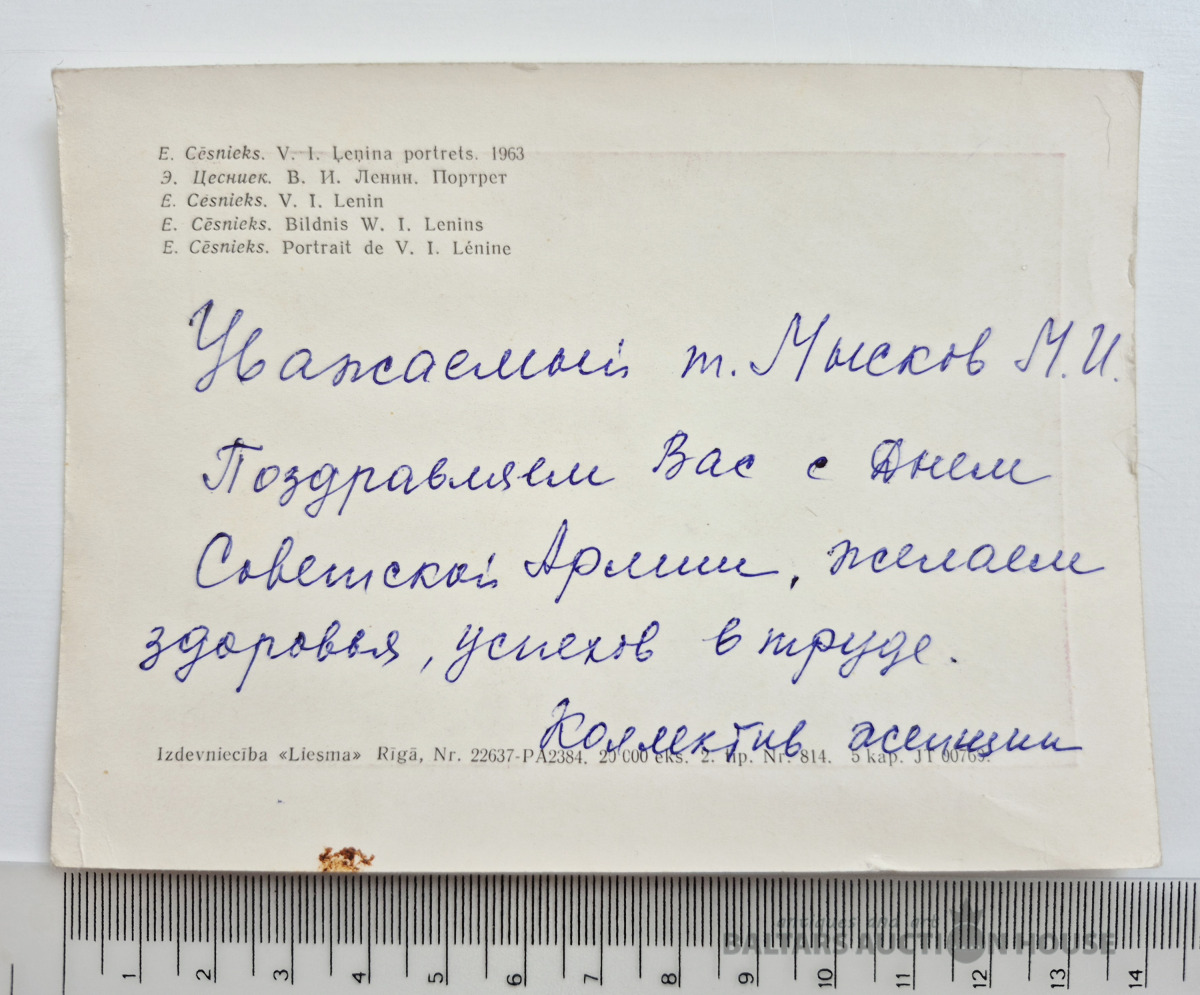 E. Cēsnieks. V. I. Ļeņina portrets. 1963
Э. Цесниек. В. И. Ленин. Портрет
E. Cēsnieks. V. I. Lenin
E. Cēsnieks. Bildnis W. I. Lenins
E. Cēsnieks. Portrait de V. I. Lénine
Уважаемый т. Мысков М.И.
Поздравляем Вас с Днем
Советской Армии, желаем
здоровья, успехов в труде.
Коллектив женщин
Izdevniecība «Liesma» Rīgā, Nr. 22637-PA2384. 20 000 eks. 2. tip. Nr. 814. 5 kap. JT 00769.
1 2 3 4 5 6 7 8 9 10 11 12 13 14
antiques and art
BALTARS AUCTION HOUSE